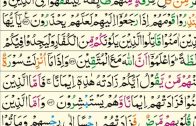 قَوْمَهُمْ إِذَا رَجَعُوٓا۟ إِلَيْهِمْ لَعَلَّهُمْ يَحْذَرُونَ
ٱلَّذِينَ ءَامَنُوا۟ قَٰتِلُوا۟ ٱلَّذِينَ يَلُونَكُم مِّنَ ٱلْكُفَّارِ وَلْيَجِدُوا۟ فِيكُمْ
ٱللَّهَ مَعَ ٱلْمُتَّقِينَ وَإِذَا مَآ أُنزِلَتْ سُورَةٌ
فَمِنْهُم مَّن يَقُولُ أَيُّكُمْ زَادَتْهُ هَٰذِهِۦٓ إِيمَٰنًا فَأَمَّا ٱلَّذِينَ
فَزَادَتْهُمْ إِيمَٰنًا وَهُمْ يَسْتَبْشِرُونَ وَأَمَّا ٱلَّذِينَ